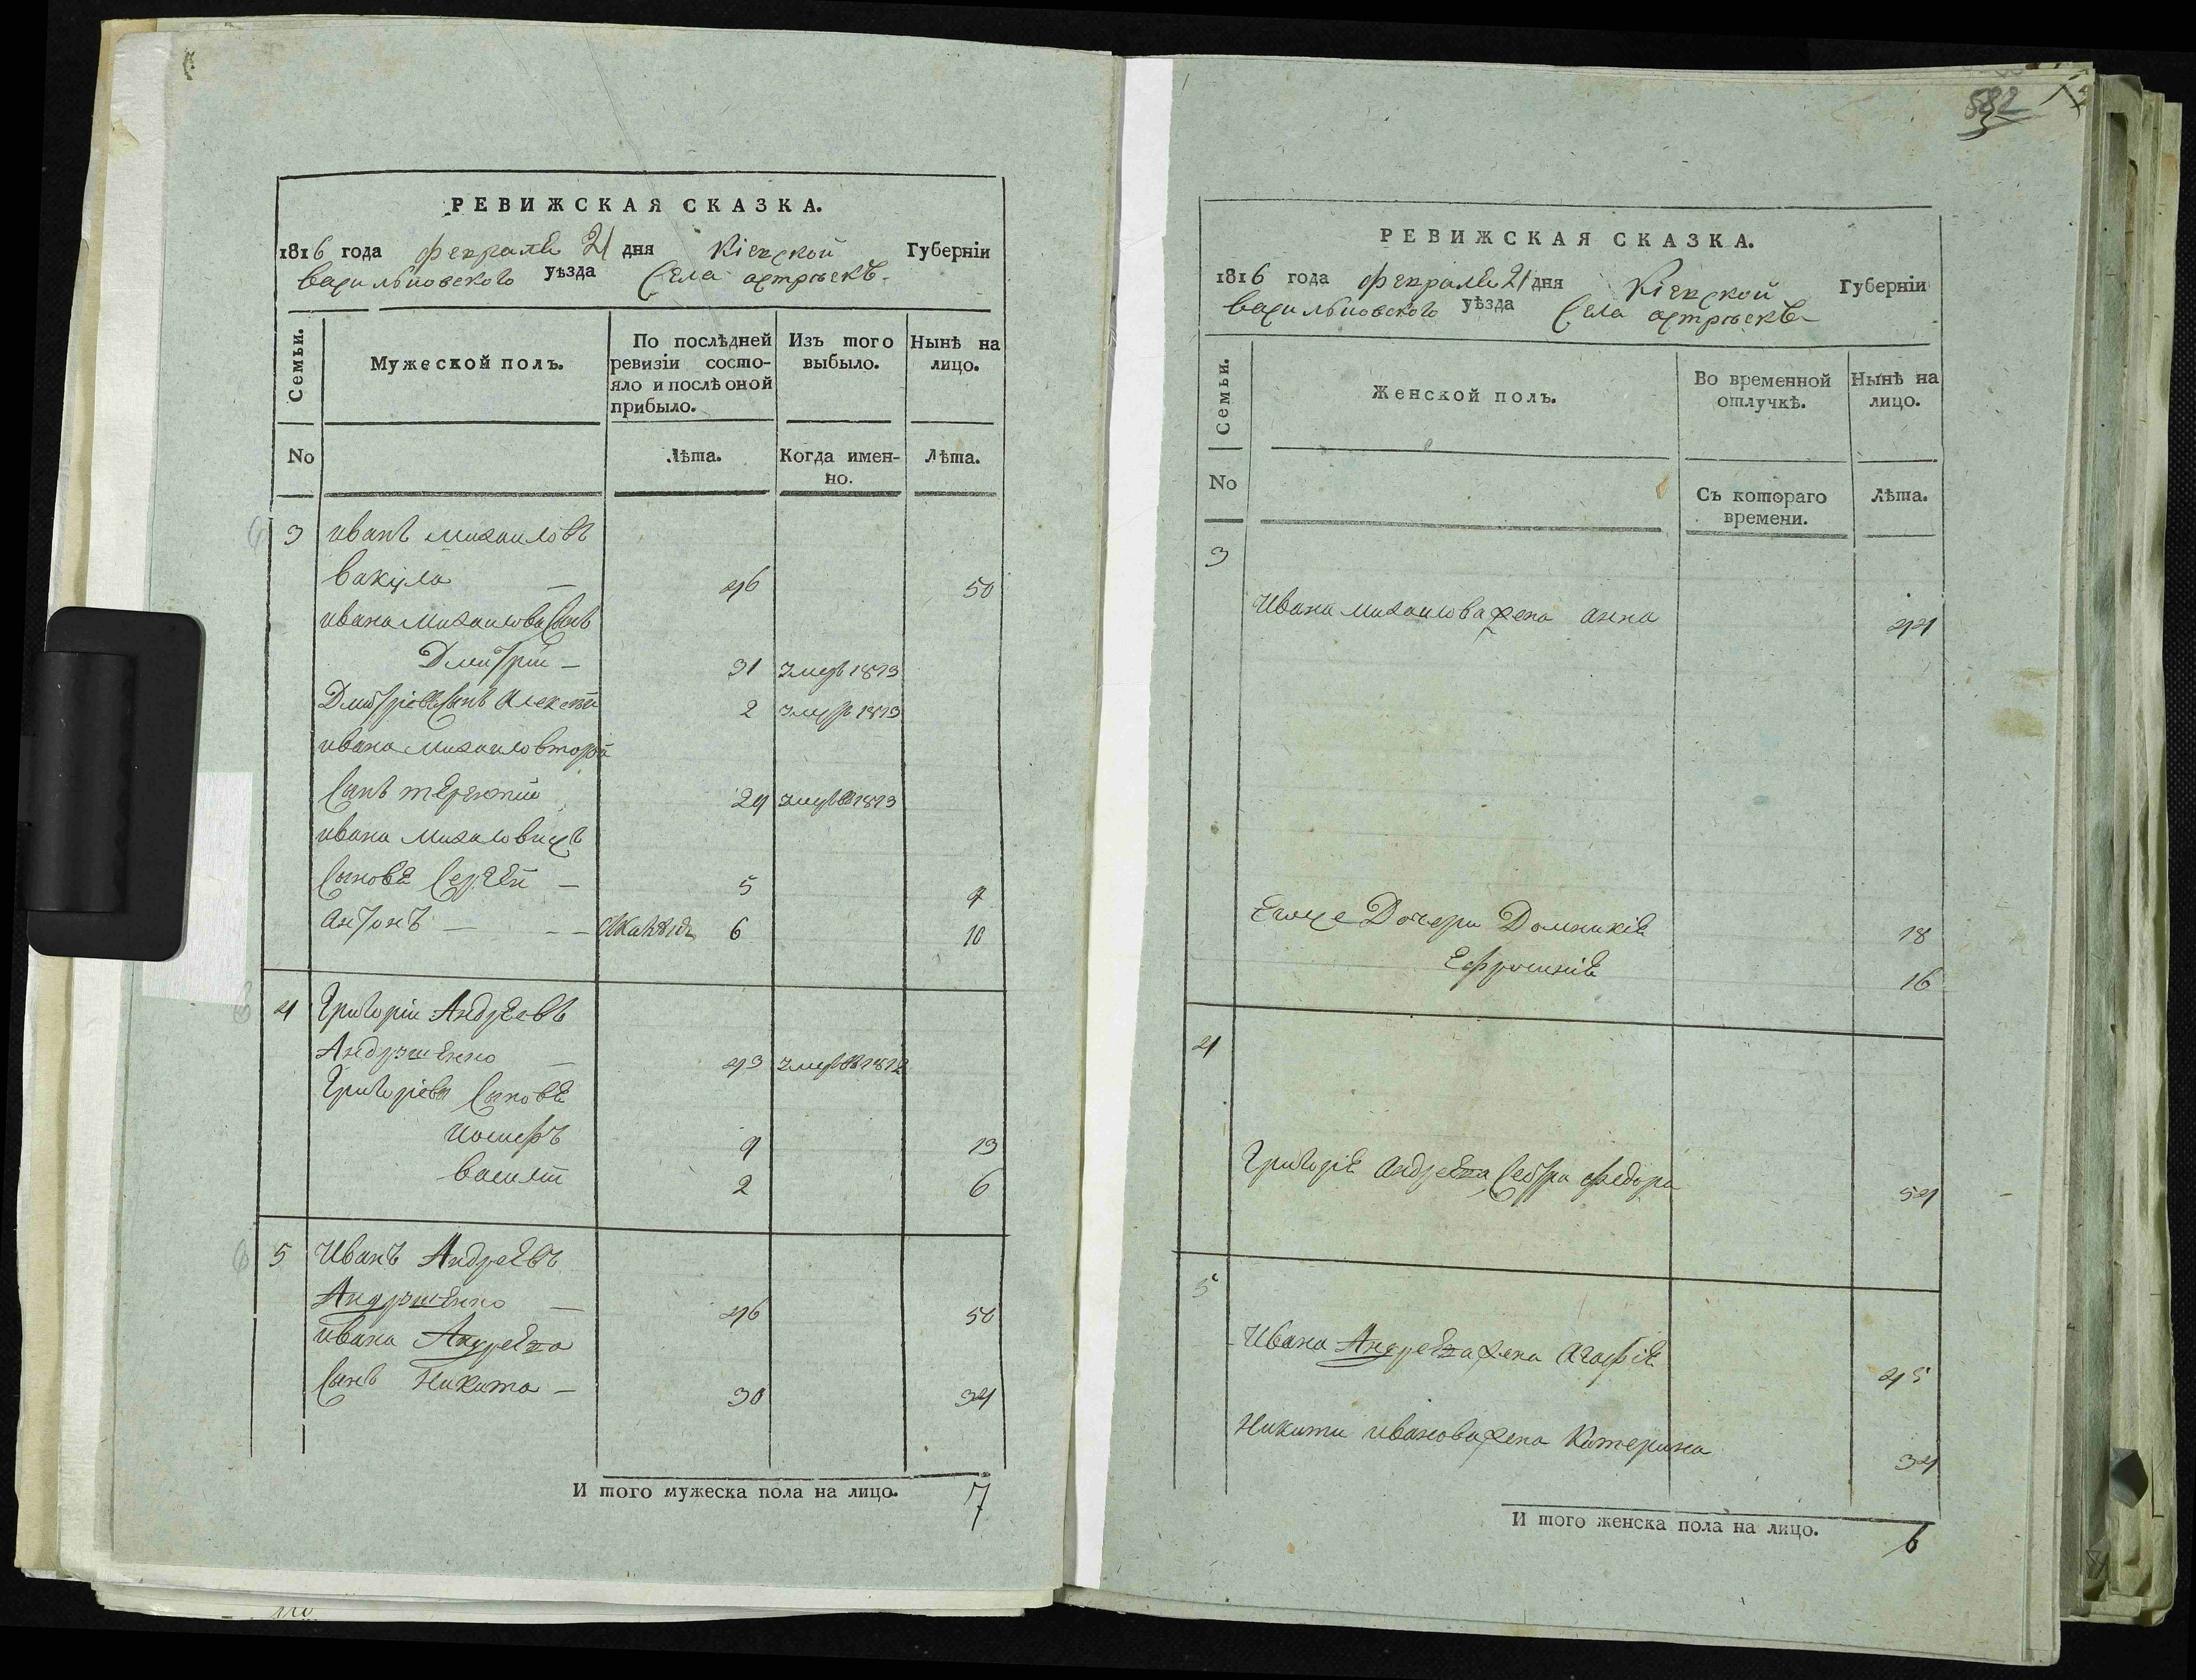 РЕВИЖСКАЯ СКАЗКА.
1816 года февраля 21 дня Кіевской Губерніи
васильковского уѣзда села
Семьи.
Мужеской полъ.
По послѣдней ревизіи состо-
яло и послѣ оной
прибыло.
Изъ того
выбыло.
Нынѣ на
лицо.
No
Лѣта.
Когда имен-
но.
Лѣта.
3 иванъ михаиловъ
вакула — 46 50
ивана михаилова сынъ
Дмитрій — 31 1813
сынъ Алексѣй 2 1813
ивана
сынъ терентій 24 1813
ивана
сыновя Сергѣй — 5 9
Антонъ — — 6 10
4 Григорій Андреевъ
Андрущенко — 43 1812
Григорієва сыновя
иосифъ 9 13
василій 2 6
5 Иванъ Андреевъ
Андрущенко — 46 50
ивана Андреева
сынъ Никита — 30 34
И того мужеска пола на лицо. 7
582
РЕВИЖСКАЯ СКАЗКА.
1816 года февраля 21 дня Кіевской Губерніи
васильковского уѣзда села
Семьи.
Женской полъ.
Во временной
отлучкѣ.
Нынѣ на
лицо.
No
Съ котораго
времени.
Лѣта.
3
Ивана михаилова жена анна 44
Дочери Домникія 18
16
4
Григорія андреева сестра федора 54
5
Ивана Андреева жена Агафія 45
Никити иванова жена Катерина 34
И того женска пола на лицо. 6